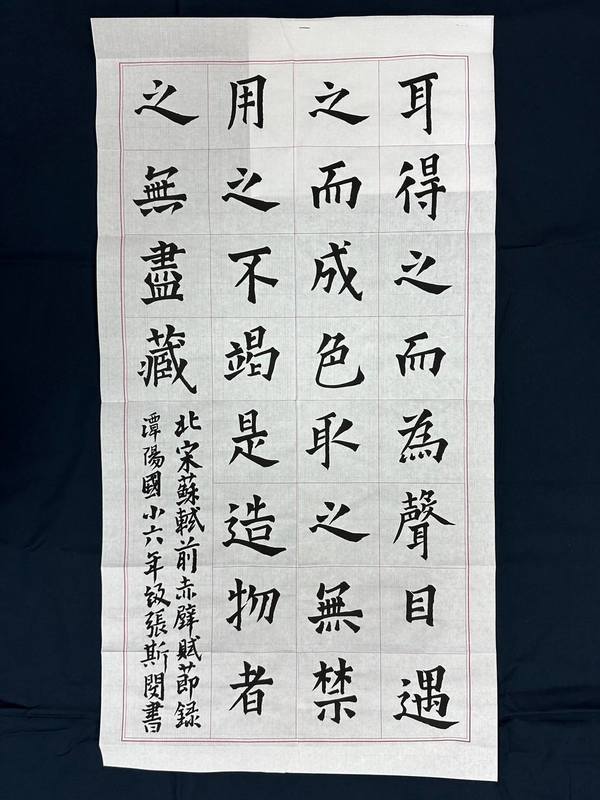 耳得之而為聲目遇
之而成色取之無禁
用之不竭是造物者
之無盡藏
北宋蘇軾前赤壁賦節録
潭陽國小六年級張斯閔書